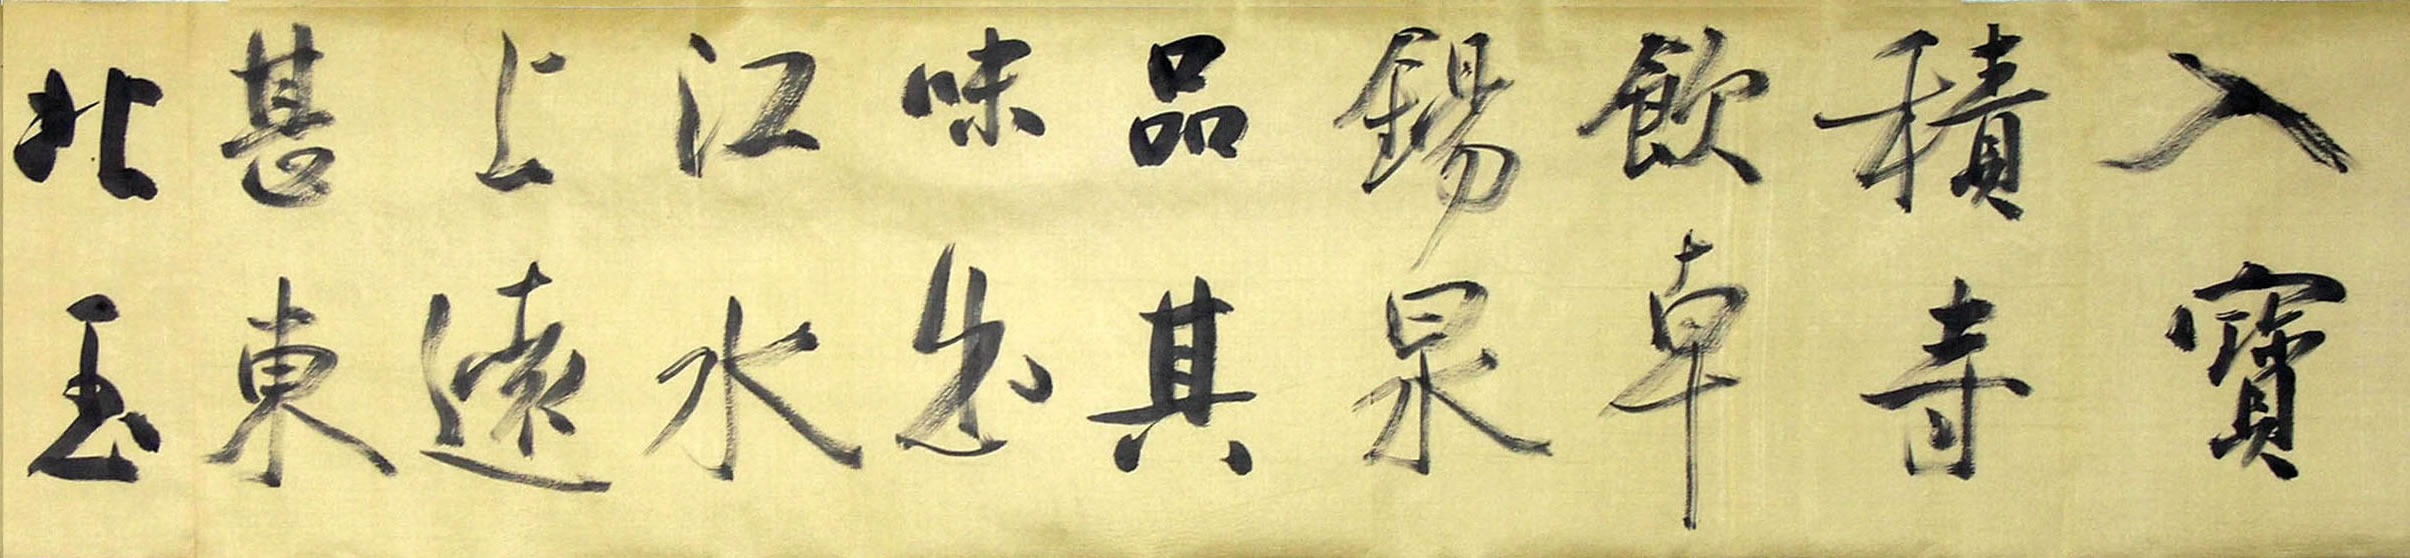 入寶
積寺
飲卓
錫泉
品其
味出
江水
上遠
甚東
北玉